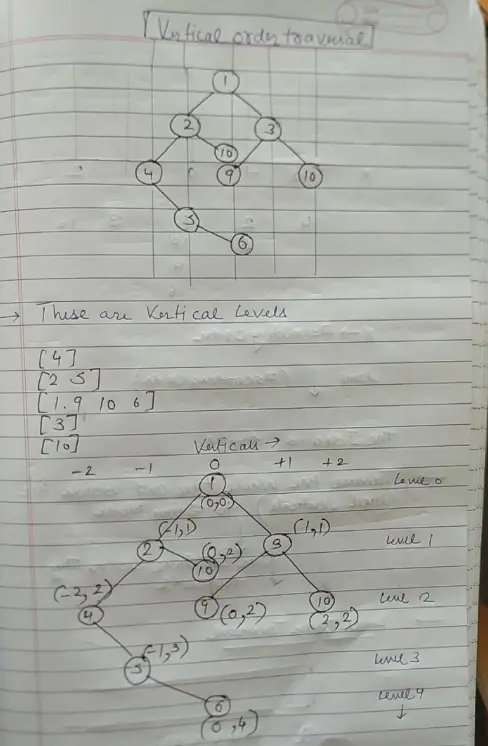 Vertical order traversal
1
2 3
4 10 9 10
5
6
→ These are Vertical Levels
[4]
[2 5]
[1. 9 10 6]
[3]
[10]
Verticals →
-2 -1 0 +1 +2
1 Level 0
(0,0)
(-1,1) (1,1)
2 (0,2) 3 Level 1
10
(-2, 2) 9 (0,2) 10 Level 2
4 (2,2)
(-1,3)
5 Level 3
6 Level 4
(0,4) ↓